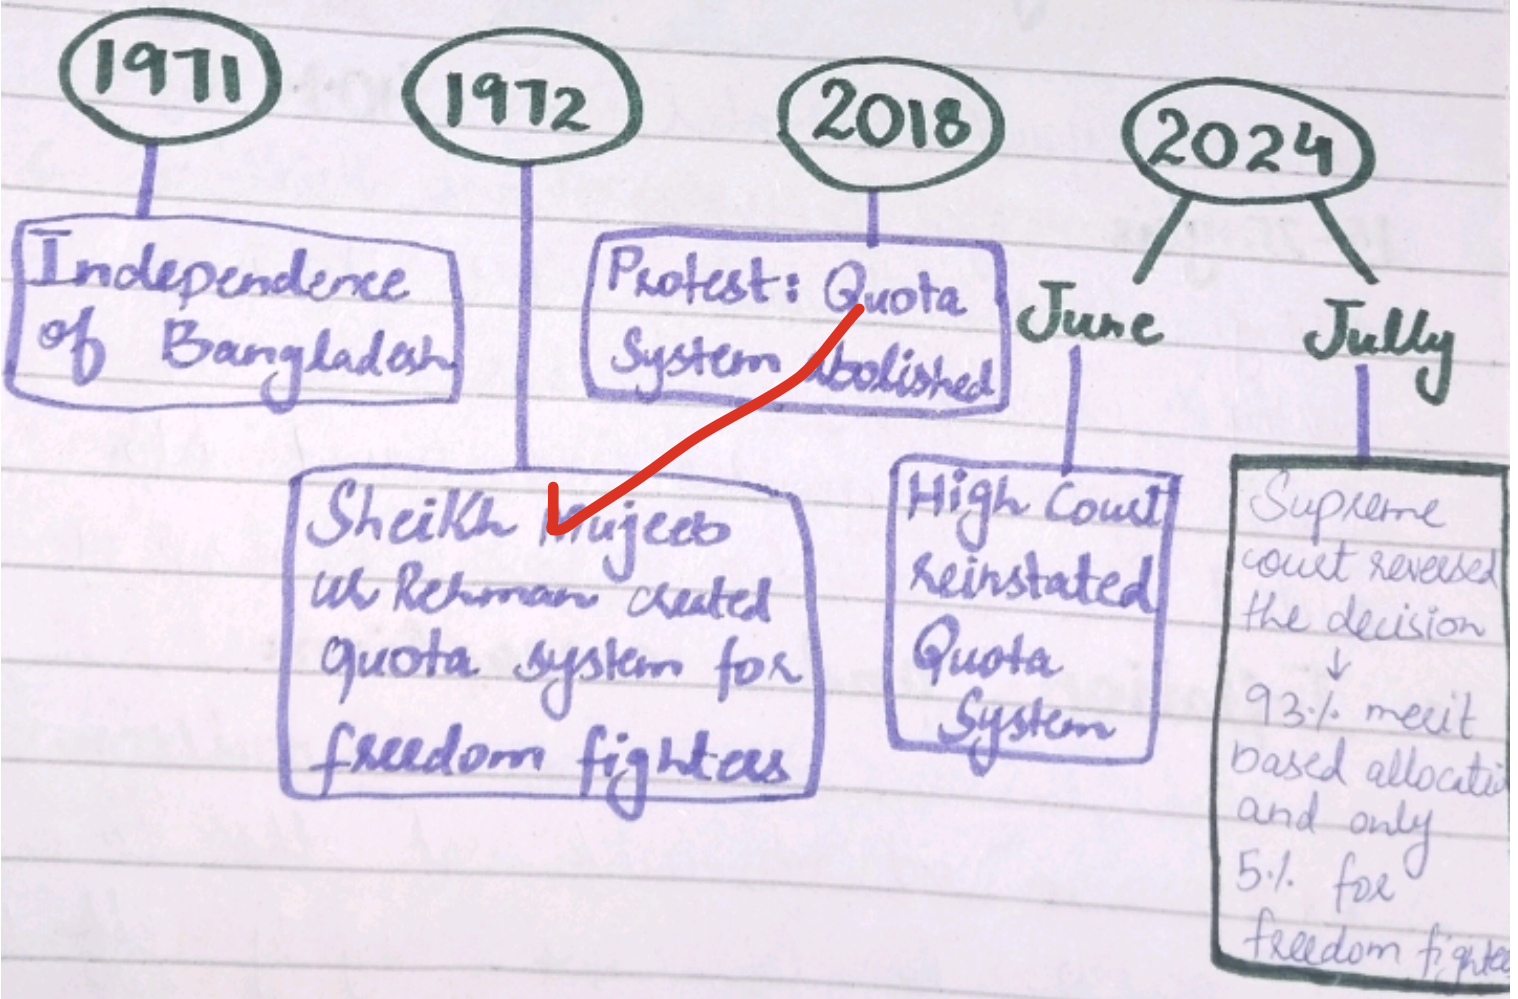 1971
1972
2018
2024
Independence
of Bangladesh
Sheikh Mujeeb
ur Rehman created
quota system for
freedom fighters
Protest: Quota
System abolished
June
High Court
reinstated
Quota
System
Jully
Supreme
court reversed
the decision
↓
93% merit
based allocati
and only
5% for
freedom fighte